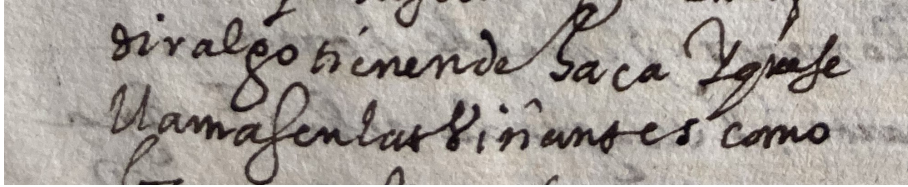 dir algo tienen de haca y que se
llamasen las Viñantes como